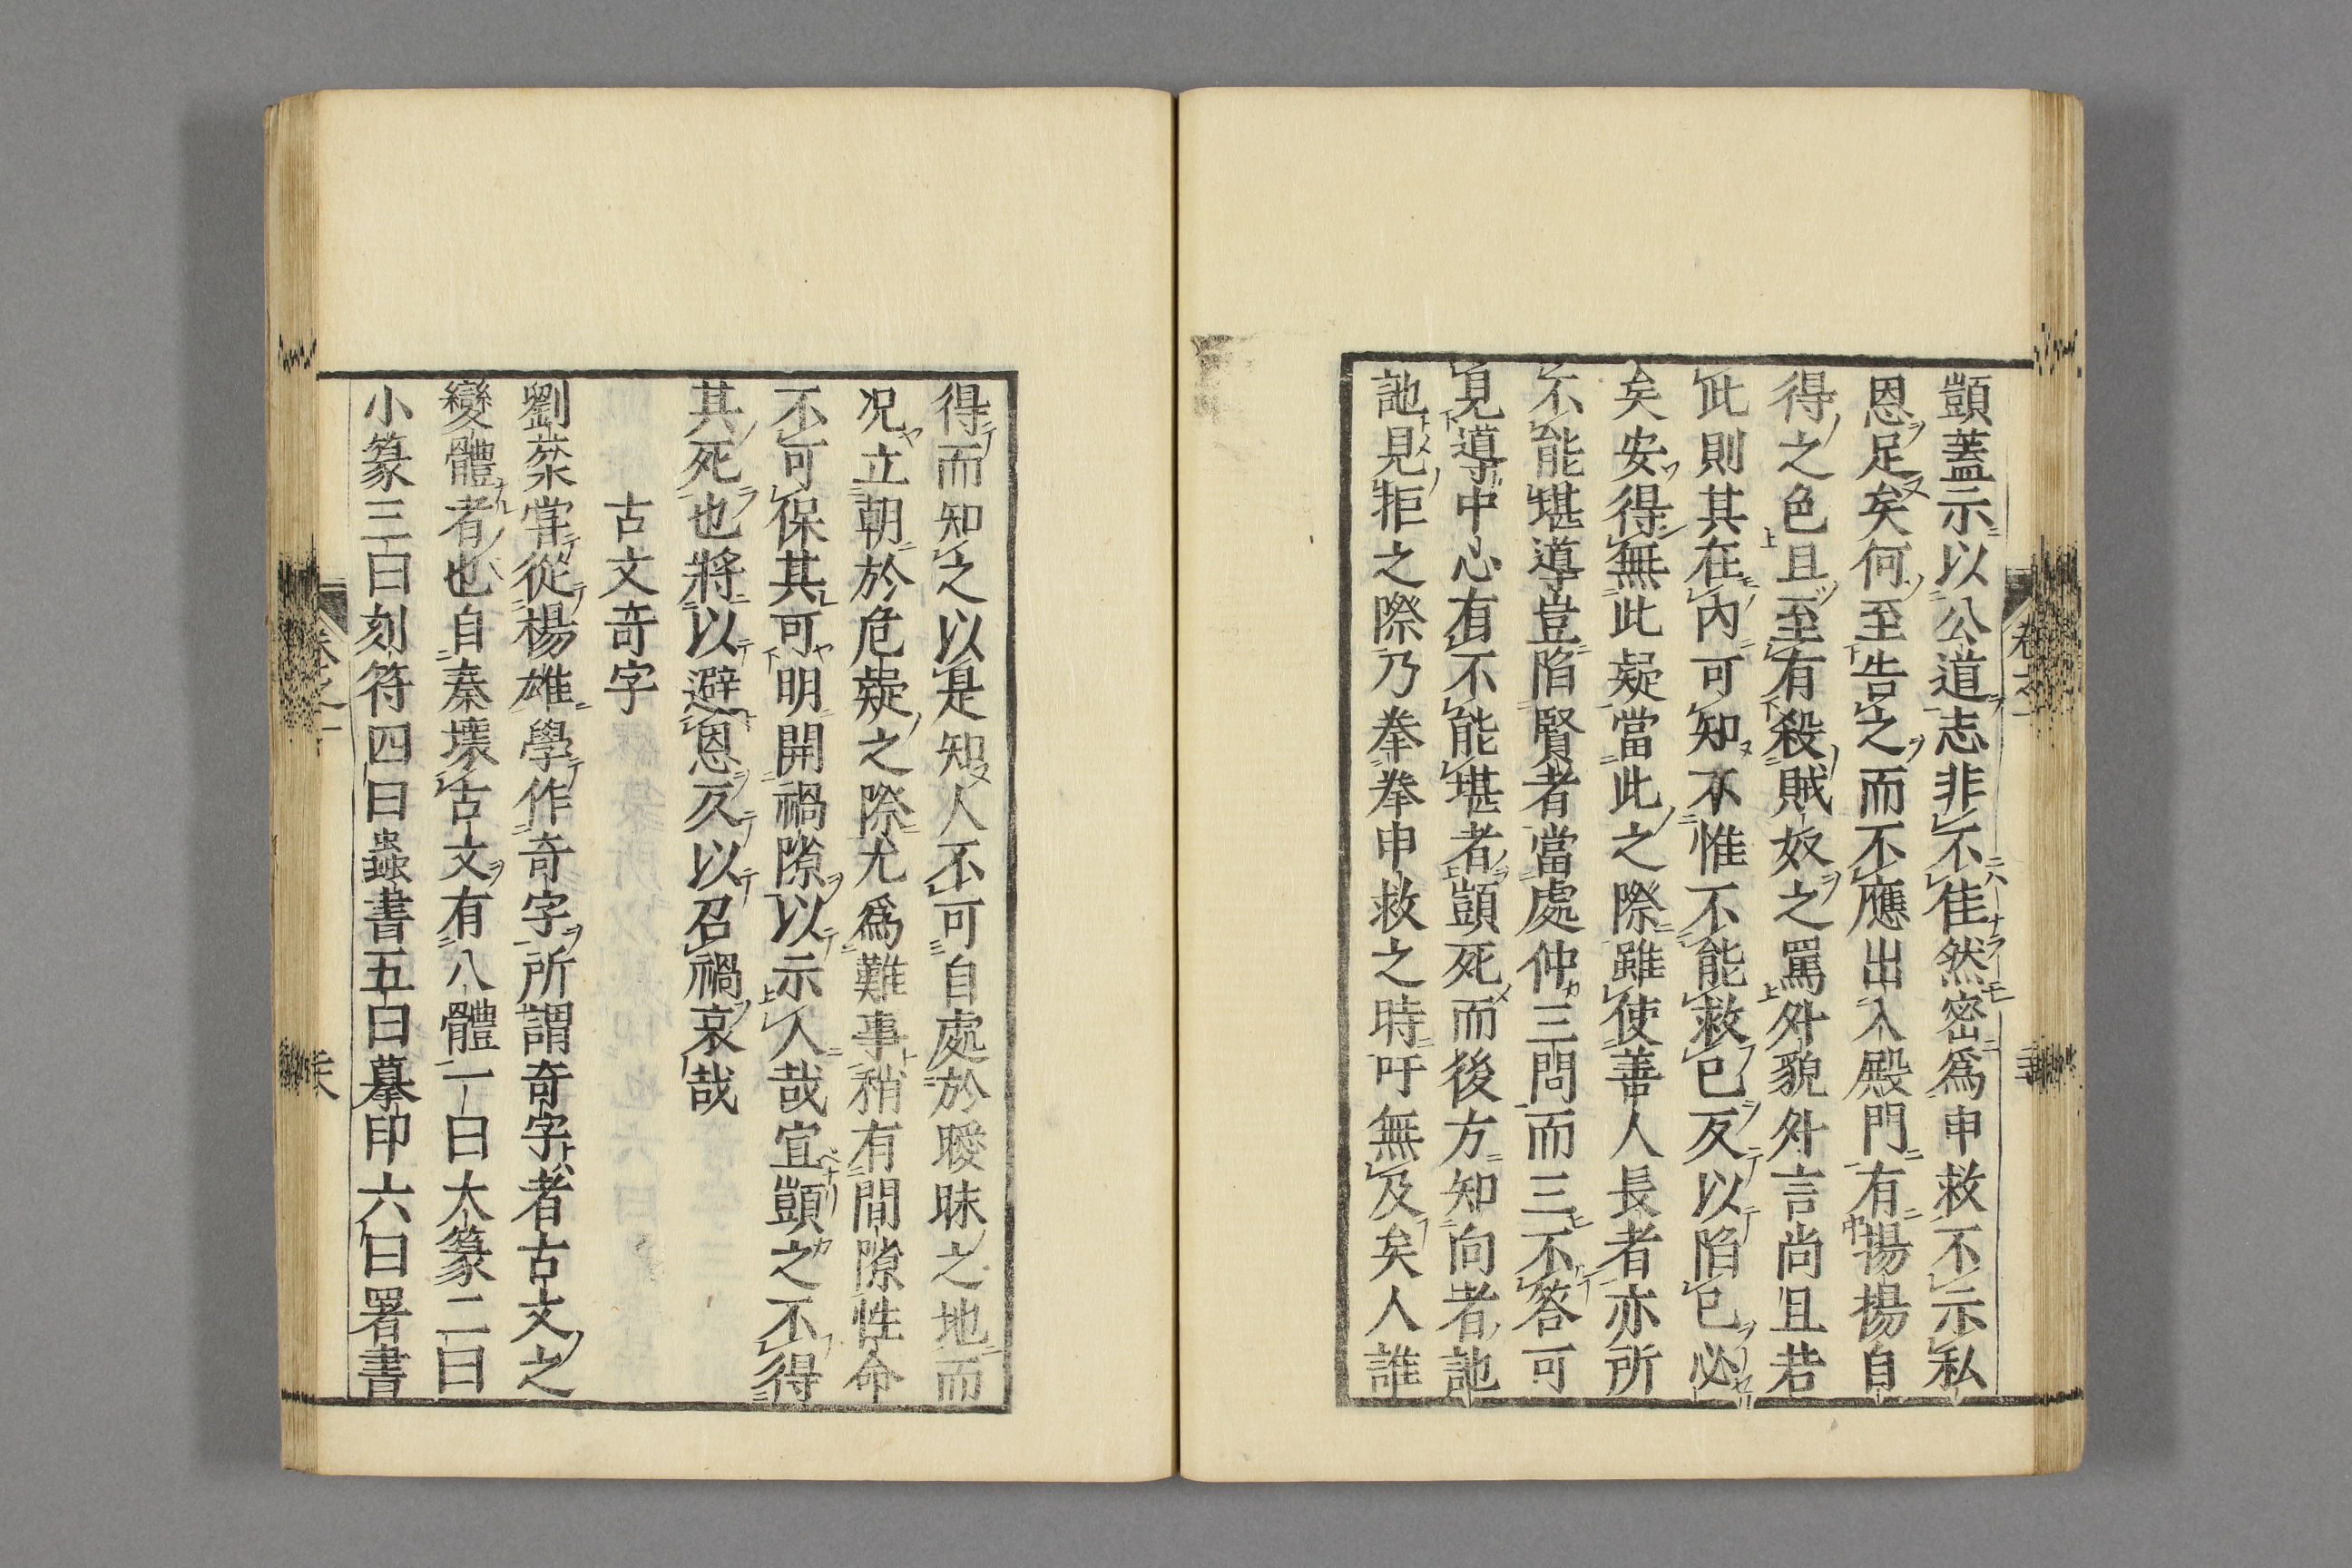 顗蓋示以公道志非不佳然密爲申救不示私
恩足矣何至告之而不應出入殿門有揚揚自
得之色且至有殺賊奴之罵外貌外言尚且若
此則其在內可知不惟不能救已反以陷已必
矣安得無此疑當此之際雖使善人長者亦所
不能堪導豈陷賢者當處仲三問而三不答可
見導中心有不能堪者顗死而後方知向者訑
訑見拒之際乃拳拳申救之時吁無及矣人誰
得而知之以是知人不可自處於曖昧之地而
况立朝於危疑之際尤爲難事稍有間隙性命
不可保其可明開禍隙以示人哉宜顗之不得
其死也將以避恩反以召禍哀哉
古文奇字
劉棻甞從楊雄學作奇字所謂奇字者古文之
變體者也自秦壞古文有八體一曰大篆二曰
小篆三曰刻符四曰蟲書五曰摹印六曰署書